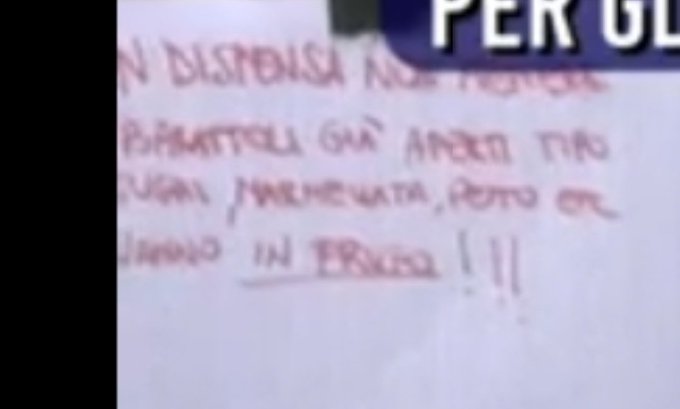 PER GL
N DISPENSA NON METTERE
BARATTOLI GIÀ APERTI TIPO
SUGHI, MARMELLATA, PESTO ETC
VANNO IN FRIGO!!!